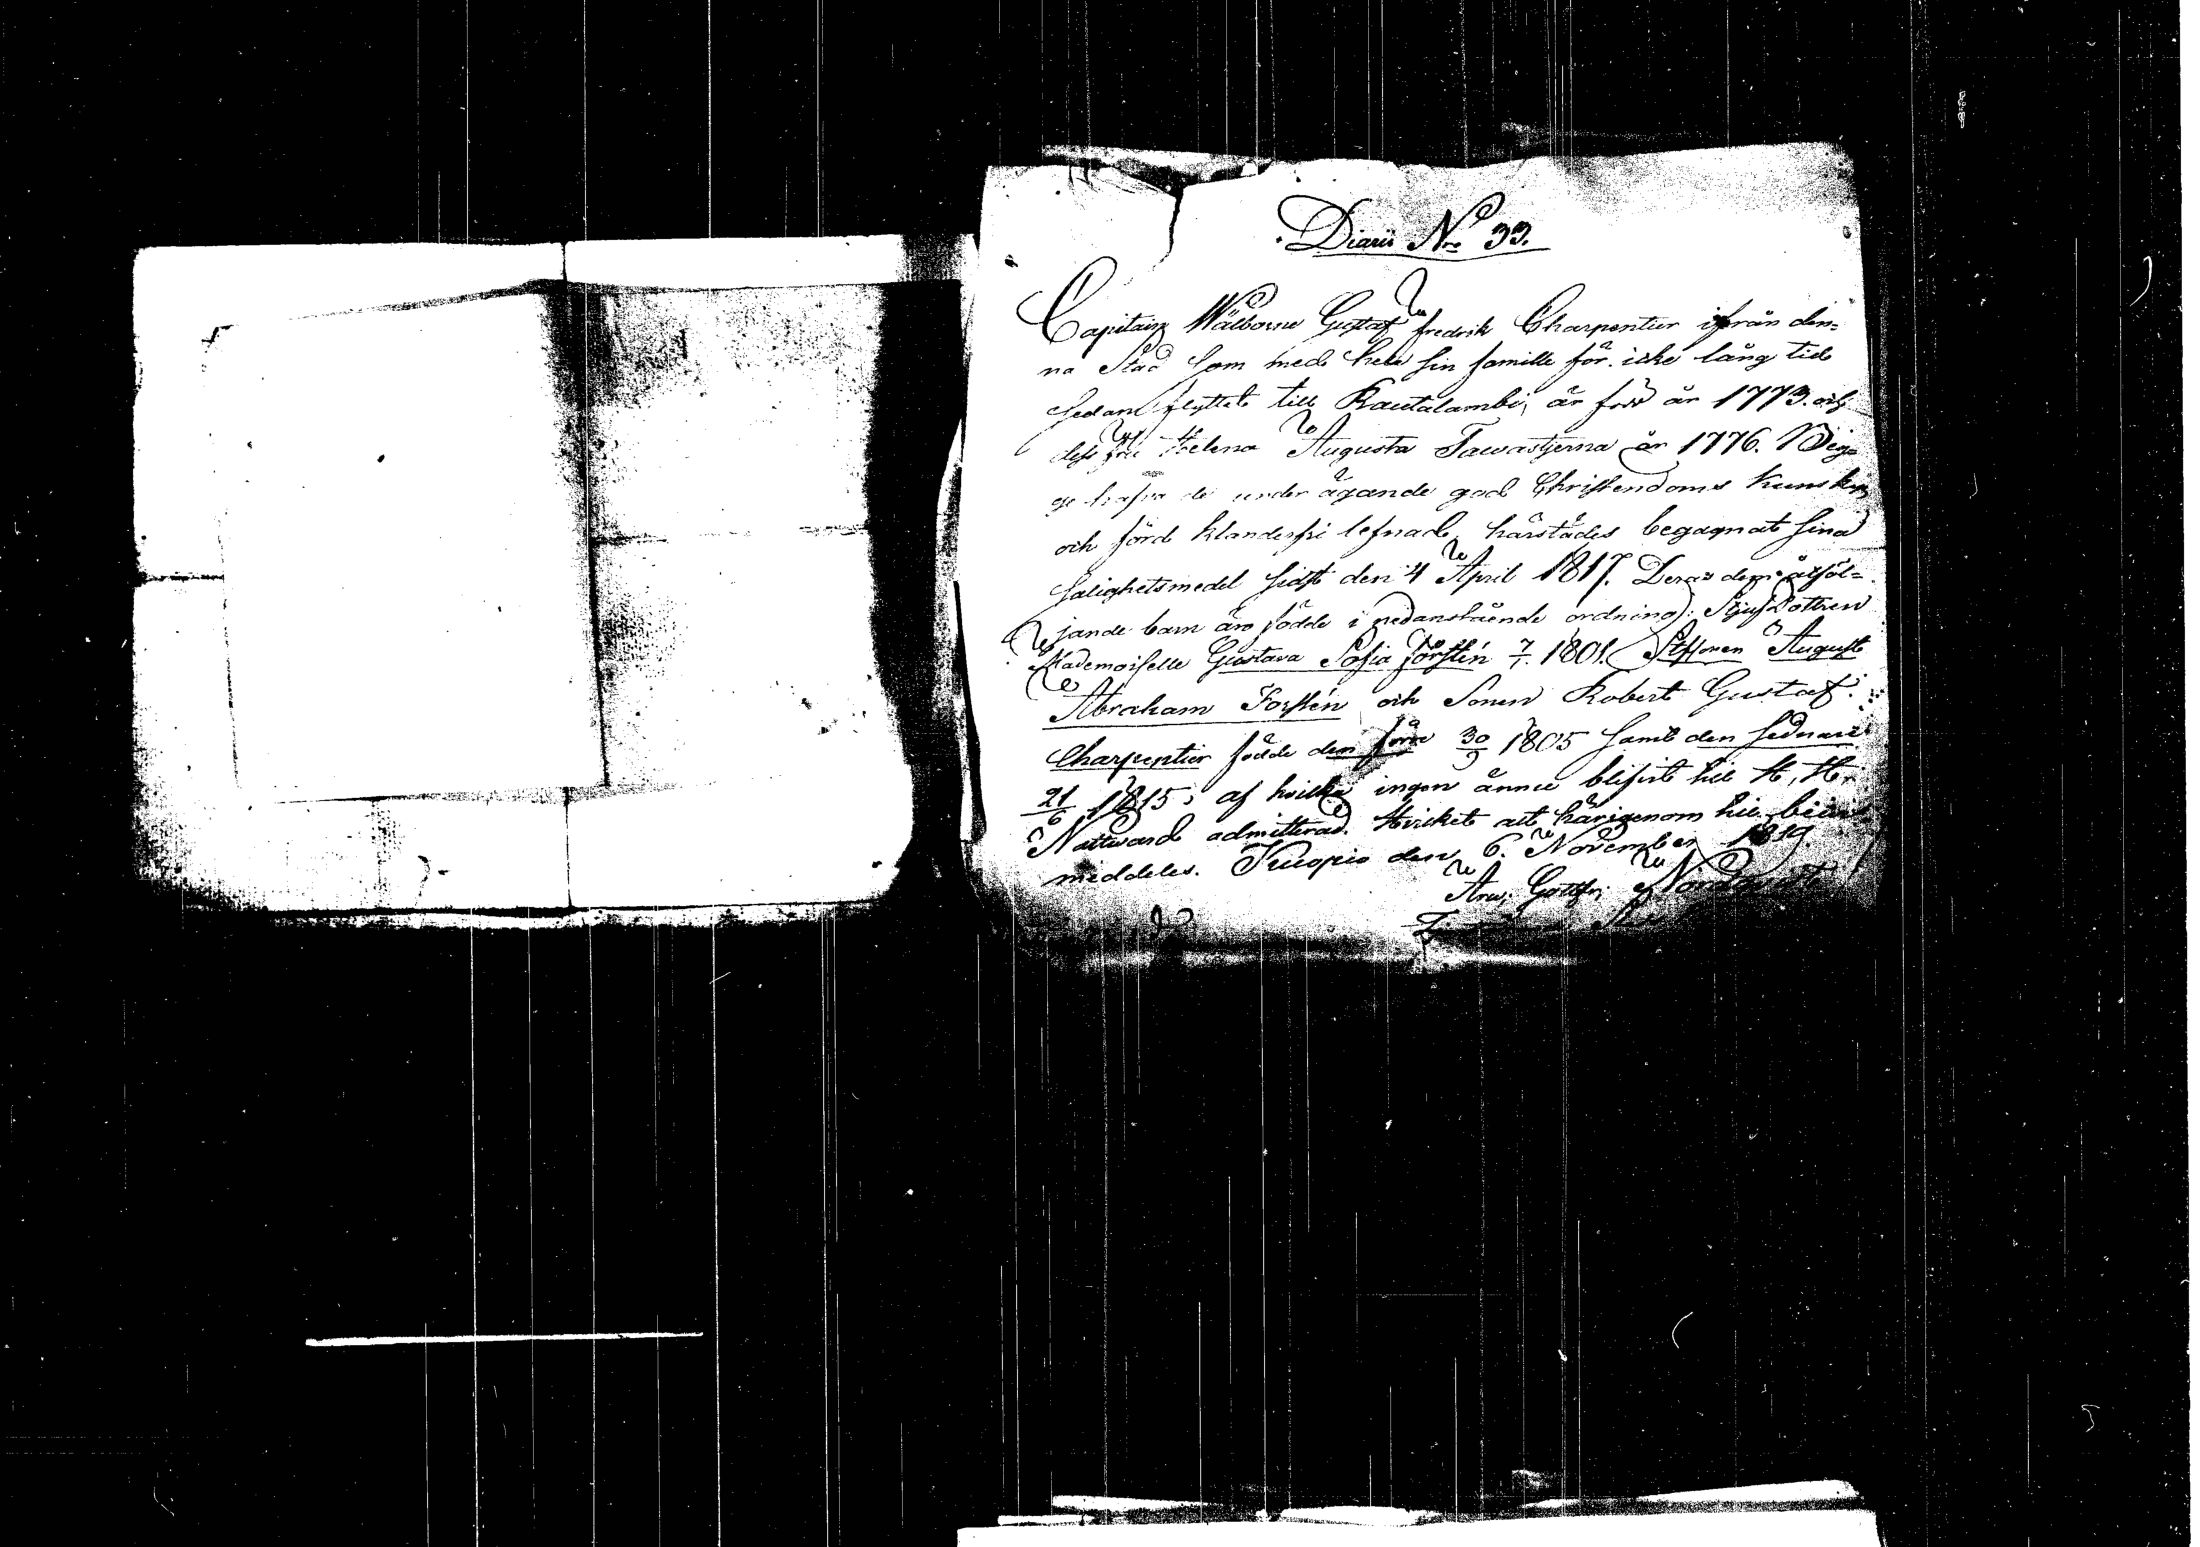 Diarii Nro 33.
Capitain Wälborne Gustaf Fredrik Charpentier ifrån den=
na Stad som med hela sin familie för icke lång tid
sedan flyttat till Rautalambi, är född år 1773. och
dess fru Helena Augusta Tawastjerna år 1776. Bägge
hafva de under ägande god Christendoms kunskap
och förd klanderfri lefnad, härstädes begagnat sina
salighetsmedel sidst den 4 April 1817. Deras dem åtföl=
jande barn äro födde i nedanstående ordning: Stjufdottren
Mademoiselle Gustava Sofia Forstén 7/1. 1801. Stjfsonen August
Abraham Forstén och Sonen Robert Gustaf
Charpentier födde den förre 30/9 1805 samt den sednare
21/6 1815, af hvilka ingen ännu blifvit till H. H.
Nattvard admitterad. Hvilket alt härigenom till bevis
meddeles. Kuopio den 6. November 1819.
Arv. Gottfr. Nordqvist